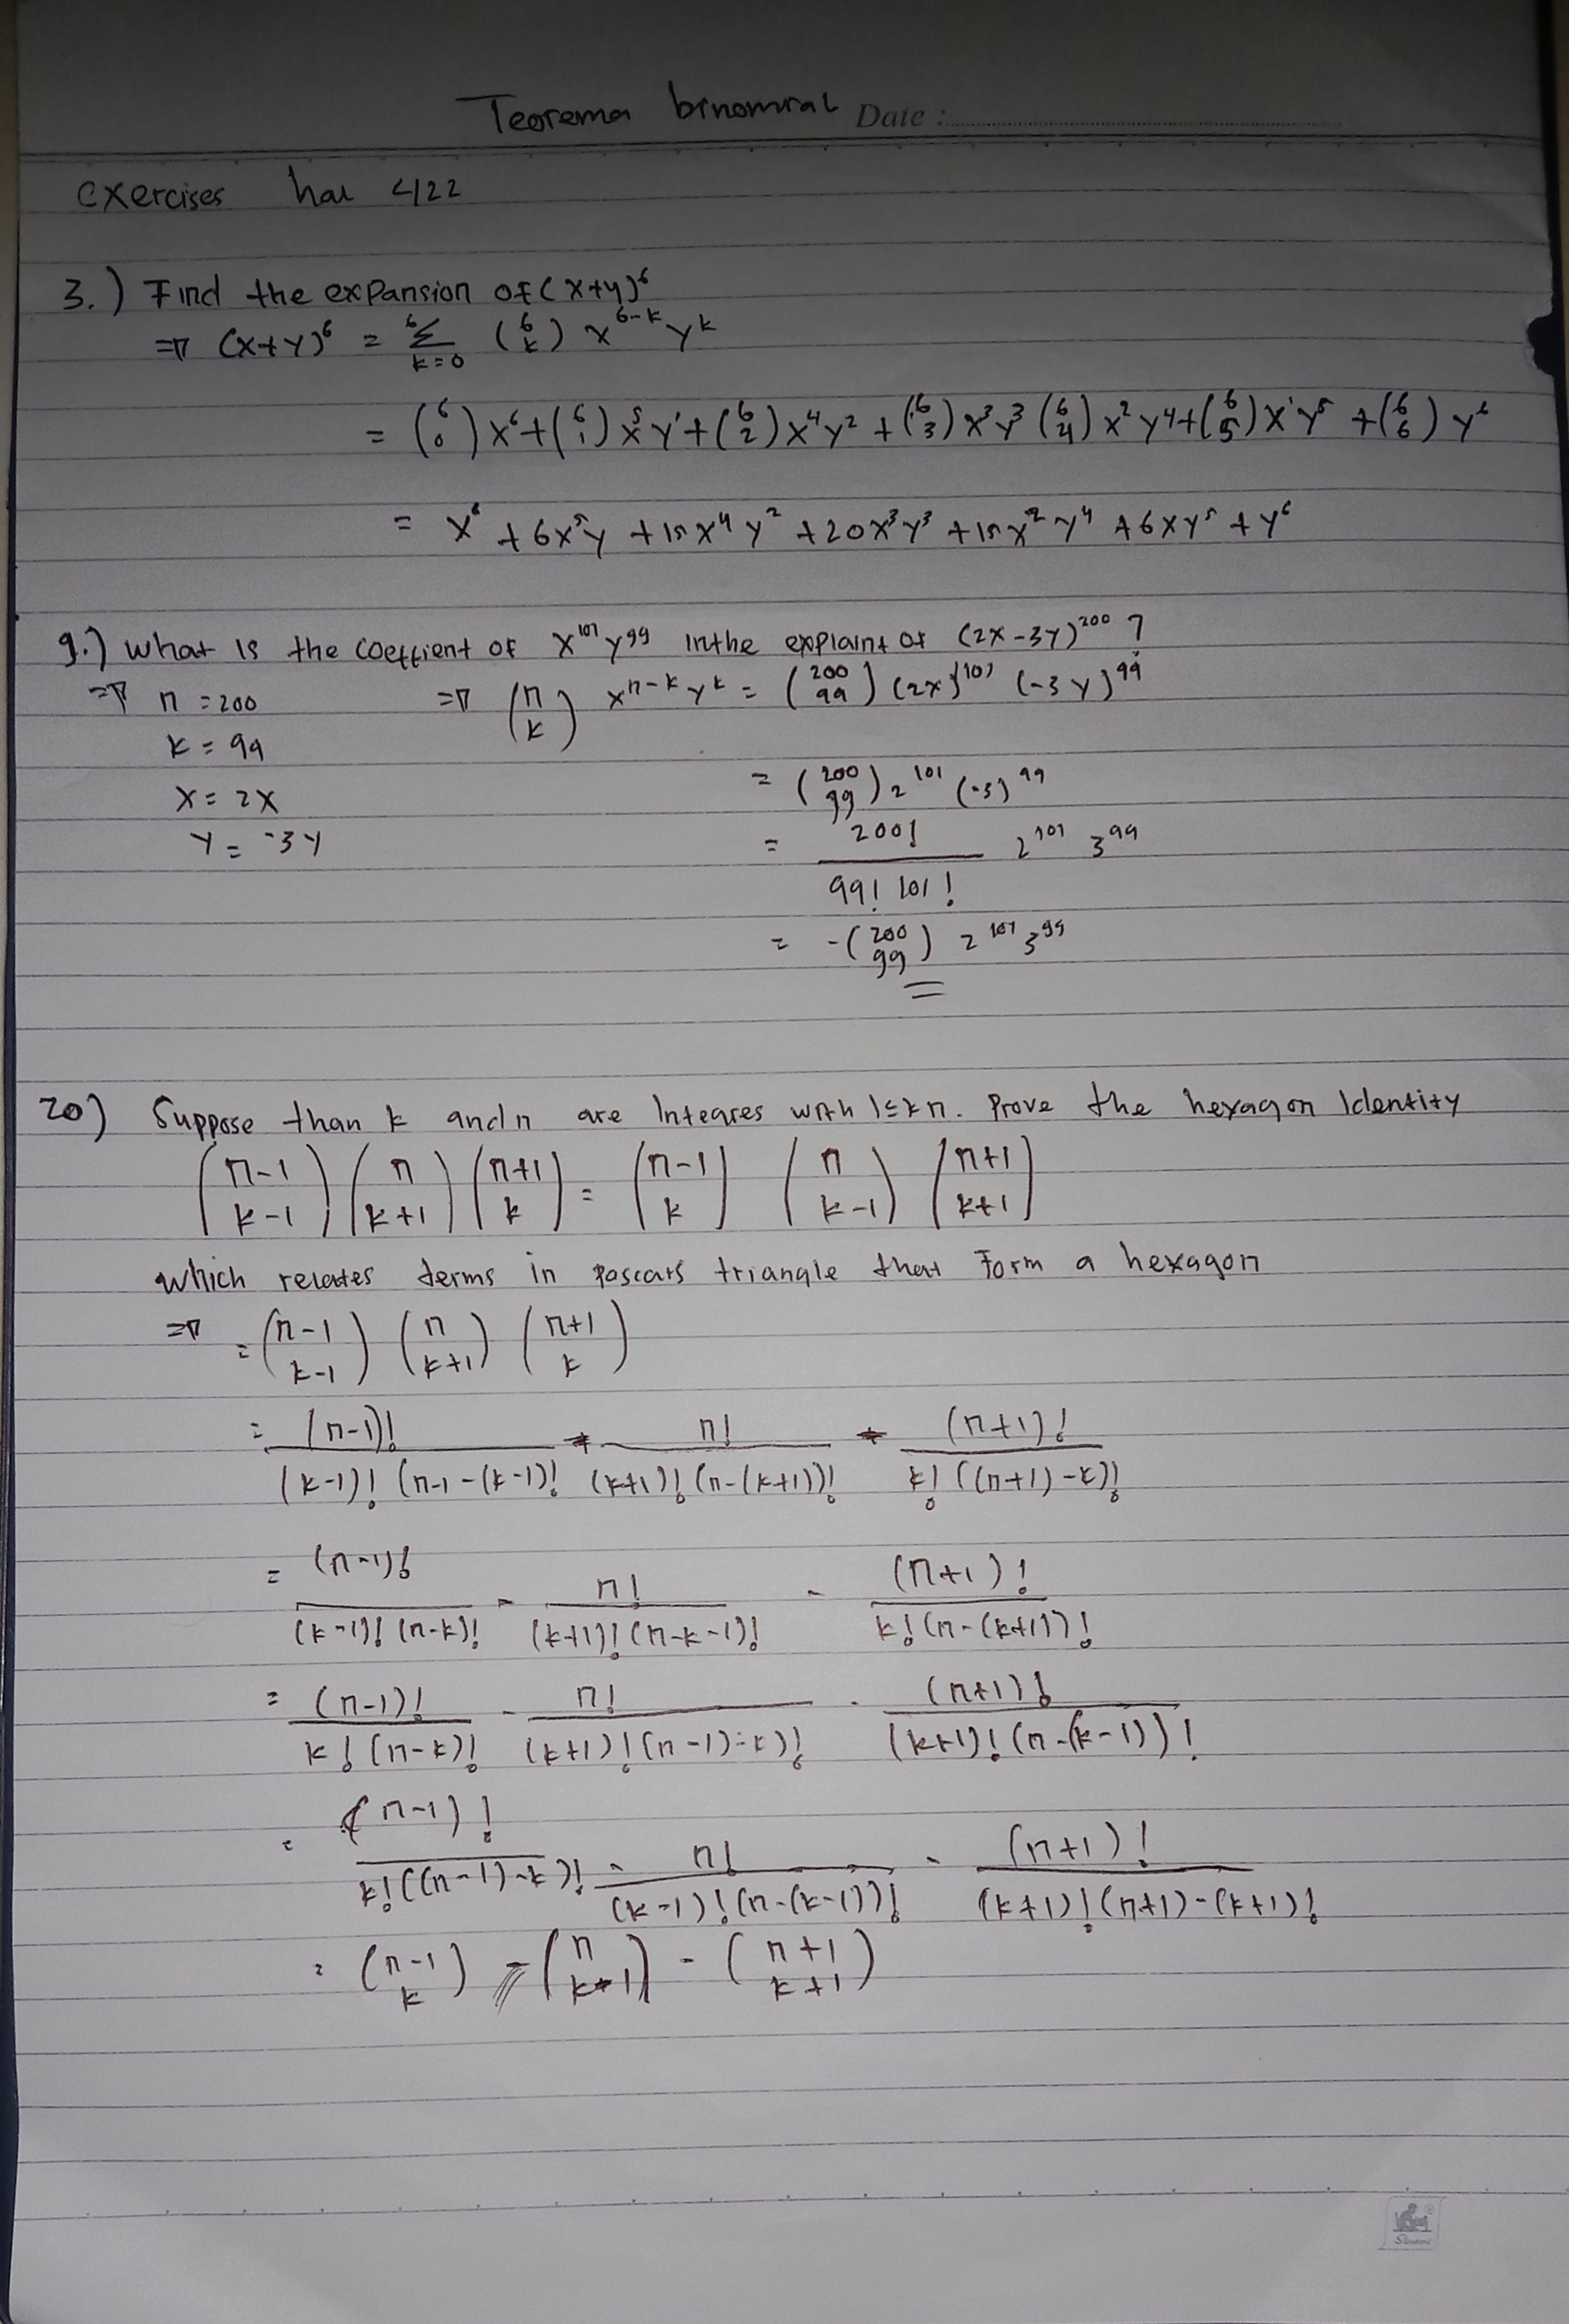 Teorema binomial Date :
exercises hal 422
3.) Find the expansion of (x+y)⁶
⇒ (x+y)⁶ = ⁶Σₖ₌₀ (6 k) x⁶⁻ᵏ yᵏ
= (6 0) x⁶ + (6 1) x⁵ y¹ + (6 2) x⁴ y² + (6 3) x³ y³ (6 4) x² y⁴ + (6 5) x¹ y⁵ + (6 6) y⁶
= x⁶ + 6x⁵y + 15x⁴y² + 20x³y³ + 15x²y⁴ + 6xy⁵ + y⁶
9.) What is the coeffient of x¹⁰¹ y⁹⁹ in the explaint of (2x-3y)²⁰⁰ ?
⇒ n = 200 ⇒ (n k) xⁿ⁻ᵏ yᵏ = (200 99) (2x)¹⁰¹ (-3y)⁹⁹
k = 99
x = 2x = (200 99) 2¹⁰¹ (-3)⁹⁹
y = -3y = 200! / 99! 101! 2¹⁰¹ 3⁹⁹
= -(200 99) 2¹⁰¹ 3⁹⁹
20) Suppose than k and n are Integres with 1≤k n. Prove the hexagon Identity
(n-1 k-1) (n k+1) (n+1 k) = (n-1 k) (n k-1) (n+1 k+1)
which relates terms in pascars triangle that Form a hexagon
⇒ = (n-1 k-1) (n k+1) (n+1 k)
= (n-1)! / (k-1)! (n-1-(k-1)! * n! / (k+1)! (n-(k+1))! * (n+1)! / k! ((n+1)-k)!
= (n-1)! / (k-1)! (n-k)! - n! / (k+1)! (n-k-1)! - (n+1)! / k! (n-(k+1))!
= (n-1)! / k! (n-k)! - n! / (k+1)! (n-1)-k)! . (n+1)! / (k+1)! (n-(k-1))!
= (n-1)! / k! ((n-1)-k)! - n! / (k-1)! (n-(k-1))! - (n+1)! / (k+1)! (n+1)-(k+1)!
= (n-1 k) - (n k-1) - (n+1 k+1)